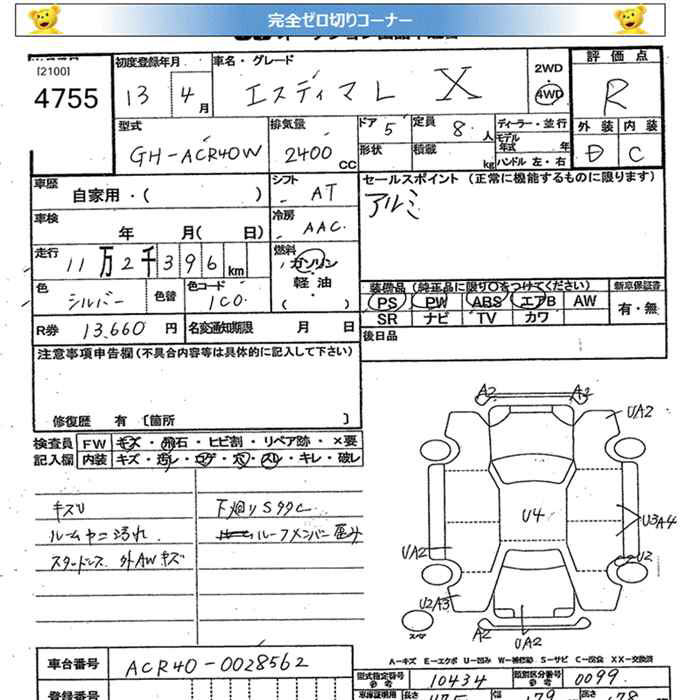 完全ゼロ切りコーナー
[2100]
4755
初度登録年月
13 4月
車名・グレード
エスティマL X
2WD
4WD
評価点
R
型式
GH-ACR40W
排気量
2400 CC
ドア 5
定員 8人
形状
積蔵 kg
ディーラー・並行
モデル年式 年
ハンドル 左・右
外装 内装
D C
車歴
自家用・( )
シフト
AT
セールスポイント (正常に機能するものに限ります)
アルミ
車検
年 月( 日)
冷房
AAC
走行
11万2千396km
燃料
ガソリン
軽油
( )
色
シルバー
色替
色コード
1C0
装備品 (純正品に限り○をつけてください)
PS PW ABS エアB AW
SR ナビ TV カワ
新車保証書
有・無
R券 13,660 円
名変通知期限 月 日
後日品
注意事項申告欄 (不具合内容等は具体的に記入して下さい)
修復歴 有 〔箇所 〕
検査員記入欄
FW キズ・飛石・ヒビ割・リペア跡・×要
内装 キズ・汚レ・コゲ・穴・スレ・キレ・破レ
キズU
ルームヤニ汚れ
スタッドレス 外AWキズ
下廻りS99C
ルーフメンバー歪み
A2 A2
UA2
U4
U3A4
UA2
U2
U2A3
スペア
A2
UA2
A-キズ E-エクボ U-凹み W-補修跡 S-サビ C-腐食 XX-交換済
車台番号
ACR40-0028562
型式指定番号
参考
10434
類別区分番号
参考
0099
登録番号
車庫証明用
長さ
475
179
178